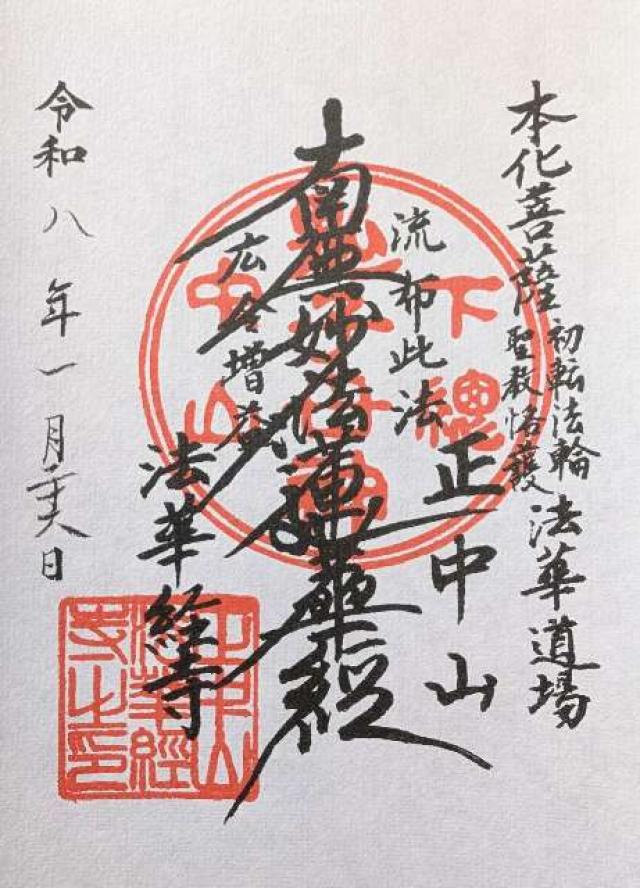 本化菩薩
初転法輪
聖教恪護
法華道場
正中山
流布此法
南無妙法蓮華経
広令増益
法華経寺
令和八年一月 日
下總
中山
正中山
法華經
寺之印